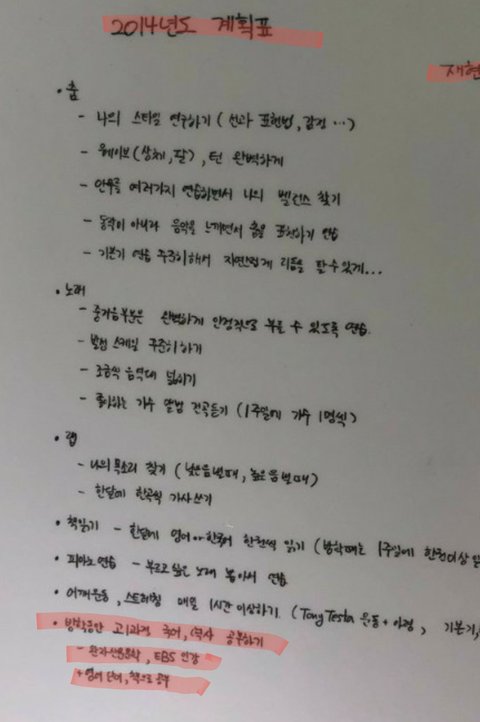 2014년도 계획표
재현
• 춤
- 나의 스타일 연구하기 (선과 표현법, 감정 ...)
- 웨이브 (상체, 팔), 턴 완벽하게
- 안무를 여러가지 연습하면서 나의 벨런스 찾기
- 동작이 아니라 음악을 느끼면서 춤을 표현하기 연습
- 기본기 연습 꾸준히해서 자연스럽게 리듬을 탈 수 있게...
• 노래
- 중저음부분은 완벽하게 안정적으로 부를 수 있도록 연습.
- 발성 스케일 꾸준히하기
- 조금씩 음역대 넓히기
- 좋아하는 가수 앨범 전곡듣기 (1주일에 가수 1명씩)
• 랩
- 나의 목소리 찾기 (낮은음 낼때, 높은음 낼때)
- 한달에 한곡씩 가사쓰기
• 책읽기 - 한달에 영어와 한국어 한권씩 읽기 (방학때는 1주일에 한권이상
• 피아노 연습 - 부르고 싶은 노래 뽑아서 연습
• 어깨운동, 스트레칭 매일 1시간 이상하기. (Tony Testa 운동 + 아령, 기본기,
• 방학동안 고1과정 국어, 역사 공부하기
- EBS 인강
+ 영어 단어, 책으로 공부